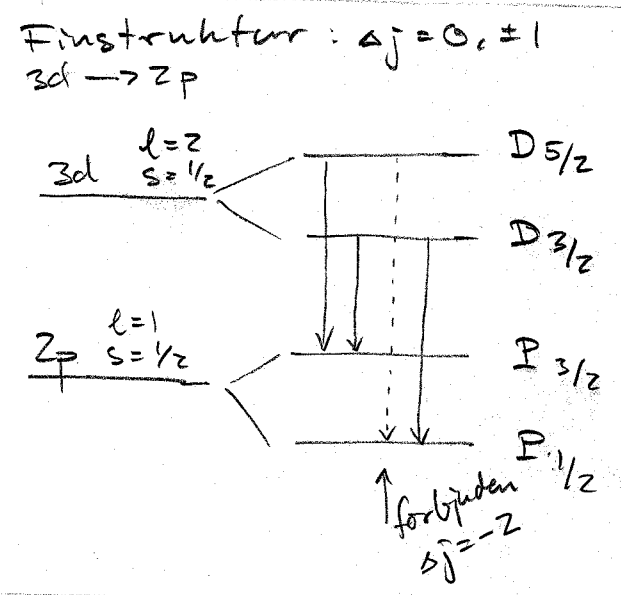 Finstruktur : Δj = 0, ±1
3d → 2p
3d
l=2
s=1/2
D 5/2
D 3/2
2p
l=1
s=1/2
P 3/2
P 1/2
förbjuden
Δj=-2